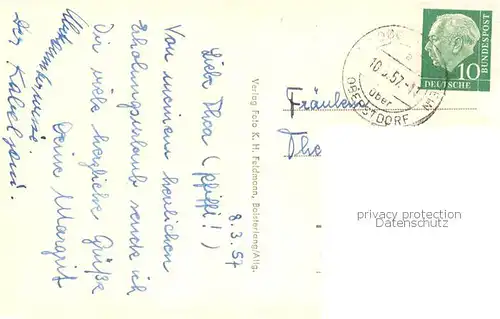 8.3.57
Liebe Thea (pfiffi!)
Von meinem herrlichen
Erholungsurlaub sende ich
Dir viele herzliche Grüße
Deine Margrit
Der
Verlag Foto K. H. Feldmann, Bolsterlang/Allg.
10.3.57
über
OBERSTDORF
DEUTSCHE
BUNDESPOST
10
Fräulein
The
privacy protection
Datenschutz